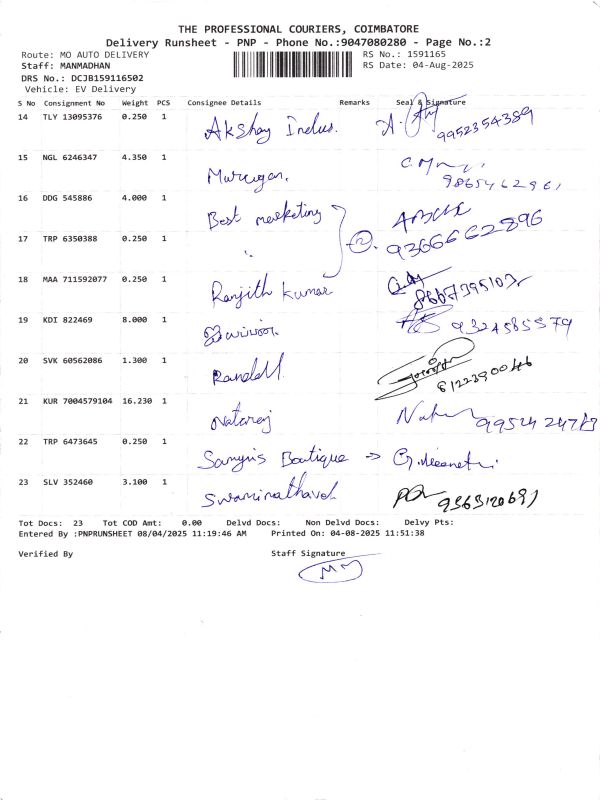 THE PROFESSIONAL COURIERS, COIMBATORE
Delivery Runsheet - PNP - Phone No.:9047080280 - Page No.:2
Route: MO AUTO DELIVERY RS No.: 1591165
Staff: MANMADHAN RS Date: 04-Aug-2025
DRS No.: DCJB159116502
Vehicle: EV Delivery
S No Consignment No Weight PCS Consignee Details Remarks Seal & Signature
14 TLY 13095376 0.250 1 Akshay Indus. A.
9952354389
15 NGL 6246347 4.350 1 Murugan.
9865462961
16 DDG 545886 4.000 1 Best marketing
9366662896
17 TRP 6350388 0.250 1 " 2.
18 MAA 711592077 0.250 1 Ranjith Kumar
19 KDI 822469 8.000 1
20 SVK 60562086 1.300 1
8122390046
21 KUR 7004579104 16.230 1 Nataraj
22 TRP 6473645 0.250 1 Boutique →
23 SLV 352460 3.100 1
Tot Docs: 23 Tot COD Amt: 0.00 Delvd Docs: Non Delvd Docs: Delvy Pts:
Entered By :PNPRUNSHEET 08/04/2025 11:19:46 AM Printed On: 04-08-2025 11:51:38
Verified By Staff Signature